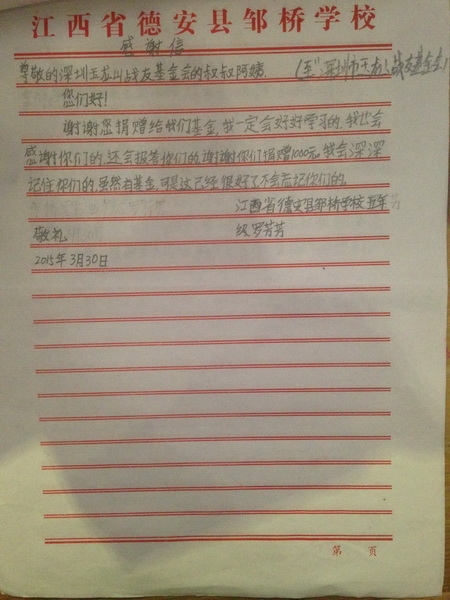 江西省德安县邹桥学校
感谢信
尊敬的深圳玉龙山战友基金会的叔叔阿姨 (至:深圳市玉龙山战友基金会)
您们好!
谢谢您捐赠给我们基金,我一定会好好学习的,我也会
感谢你们的,还会报答你们的,谢谢你们捐赠1000元。我会深深
记住你们的,虽然有基金,可是这已经很好了不会忘记你们的。
江西省德安县邹桥学校五年
敬礼 级罗芳芳
2015年3月30日
第 页